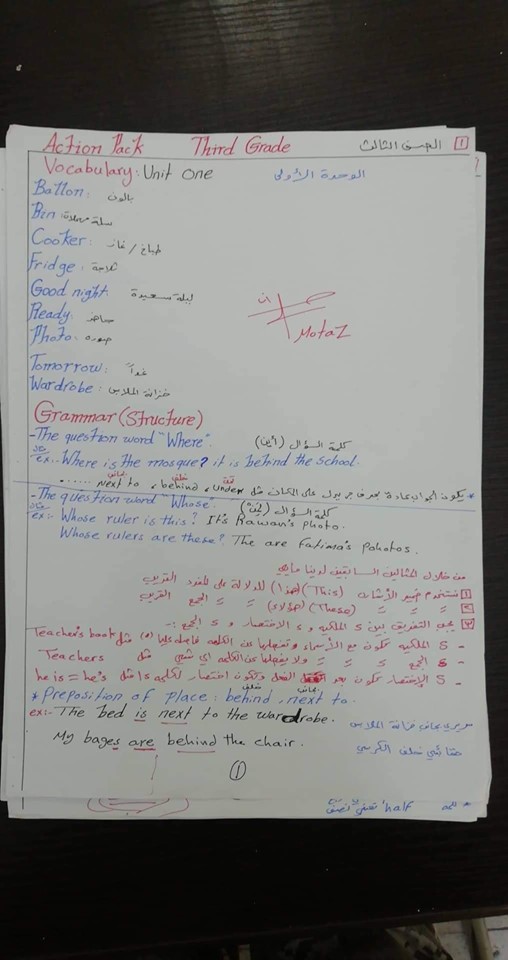 Action Pack Third Grade الصف الثالث 1
Vocabulary: Unit One الوحدة الأولى
Balloon: بالون
Bin: سلة مهملات
Cooker: طباخ / غاز
Fridge: ثلاجة
Good night: ليلة سعيدة
Ready: جاهز
Photo: صورة
MotaZ
Tomorrow: غداً
Wardrobe: خزانة الملابس
Grammar (Structure)
- The question word "Where". كلمة السؤال (أين)
ex:. Where is the mosque? it is behind the school.
* يكون الجواب عادة بحرف جر يدل على المكان مثل under, behind, next to ......
- The question word "Whose". كلمة السؤال (لمن)
ex:- Whose ruler is this? It's Rawan's photo.
Whose rulers are these? The are Fatima's pohotos.
من خلال المثالين السابقين لدينا مايلي
1 نستخدم ضمير الأشارة (This) (هذا) للدلالة على المفرد القريب
2 " " " (These) (هؤلاء) " " الجمع القريب
3 يجب التفريق بين s الملكية و s الاختصار و s الجمع :-
- S الملكية تكون مع الأسماء وتفصلها عن الكلمة فاصلة عليا (') مثل Teacher's book
- S الجمع " " " ولا يفصلها عن الكلمة أي شيء مثل Teachers
- S الإختصار تكون بعد الفعل وتكون اختصار لكلمة is مثل he is = he's
* Preposition of place: behind خلف, next to بجانب.
ex:- The bed is next to the wardrobe. سريري بجانب خزانة الملابس
My bages are behind the chair. حقائبي خلف الكرسي
1
* half تعني نصف